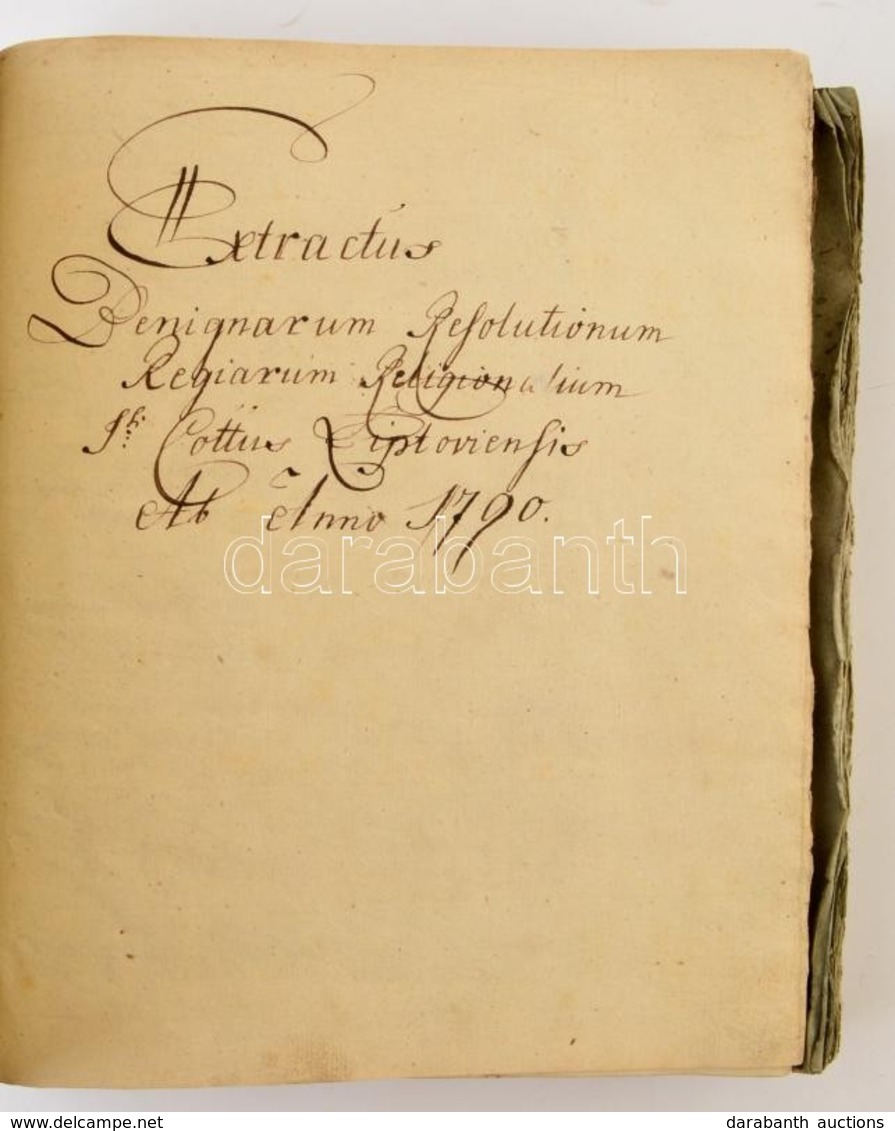 Extractus
Benignarum Resolutionum
Regiarum Religionalium
I. Cottus Liptoviensis
Ab Anno 1790.
darabanth
darabanth auctions